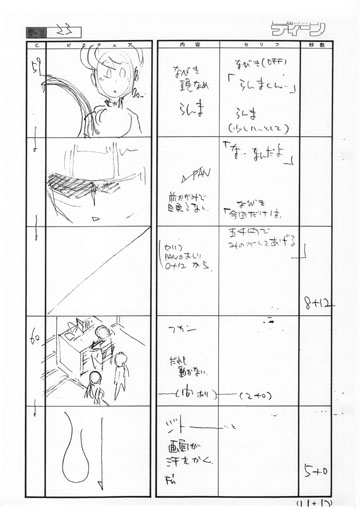 23
ディーン
C.
ピクチュア
内容
セリフ
秒数
59
なびき
鏡なめ
らんま
なびき(OFF)
「らんまくん…」
らんま
「な…なんだよ」
PAN
前がみで
目見えない
なびき
「今回だけは
五千円で
みのがしてあげる」
セリフ
PANのあまり
0+12から
8+12
60
だれも
動かない
(間あり)
(2+0)
ジトー
画面が
汗をかく
5+0